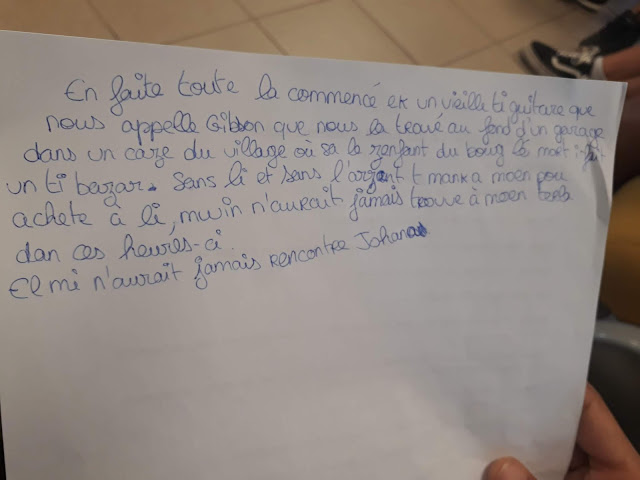 En faite toute la commencé ek un vieille ti guitare que
nous appelle Gibson que nous la trouvé au fond d'un garage
dans un caze du village où sa la ranfant du boug lé mort i fait
un ti bazar. Sans li et sans l'argent t manka moen pou
achete à li, mwin n'aurait jamais trouve à moen terla
dan ces heures-ci.
El mi n'aurait jamais rencontre Johana